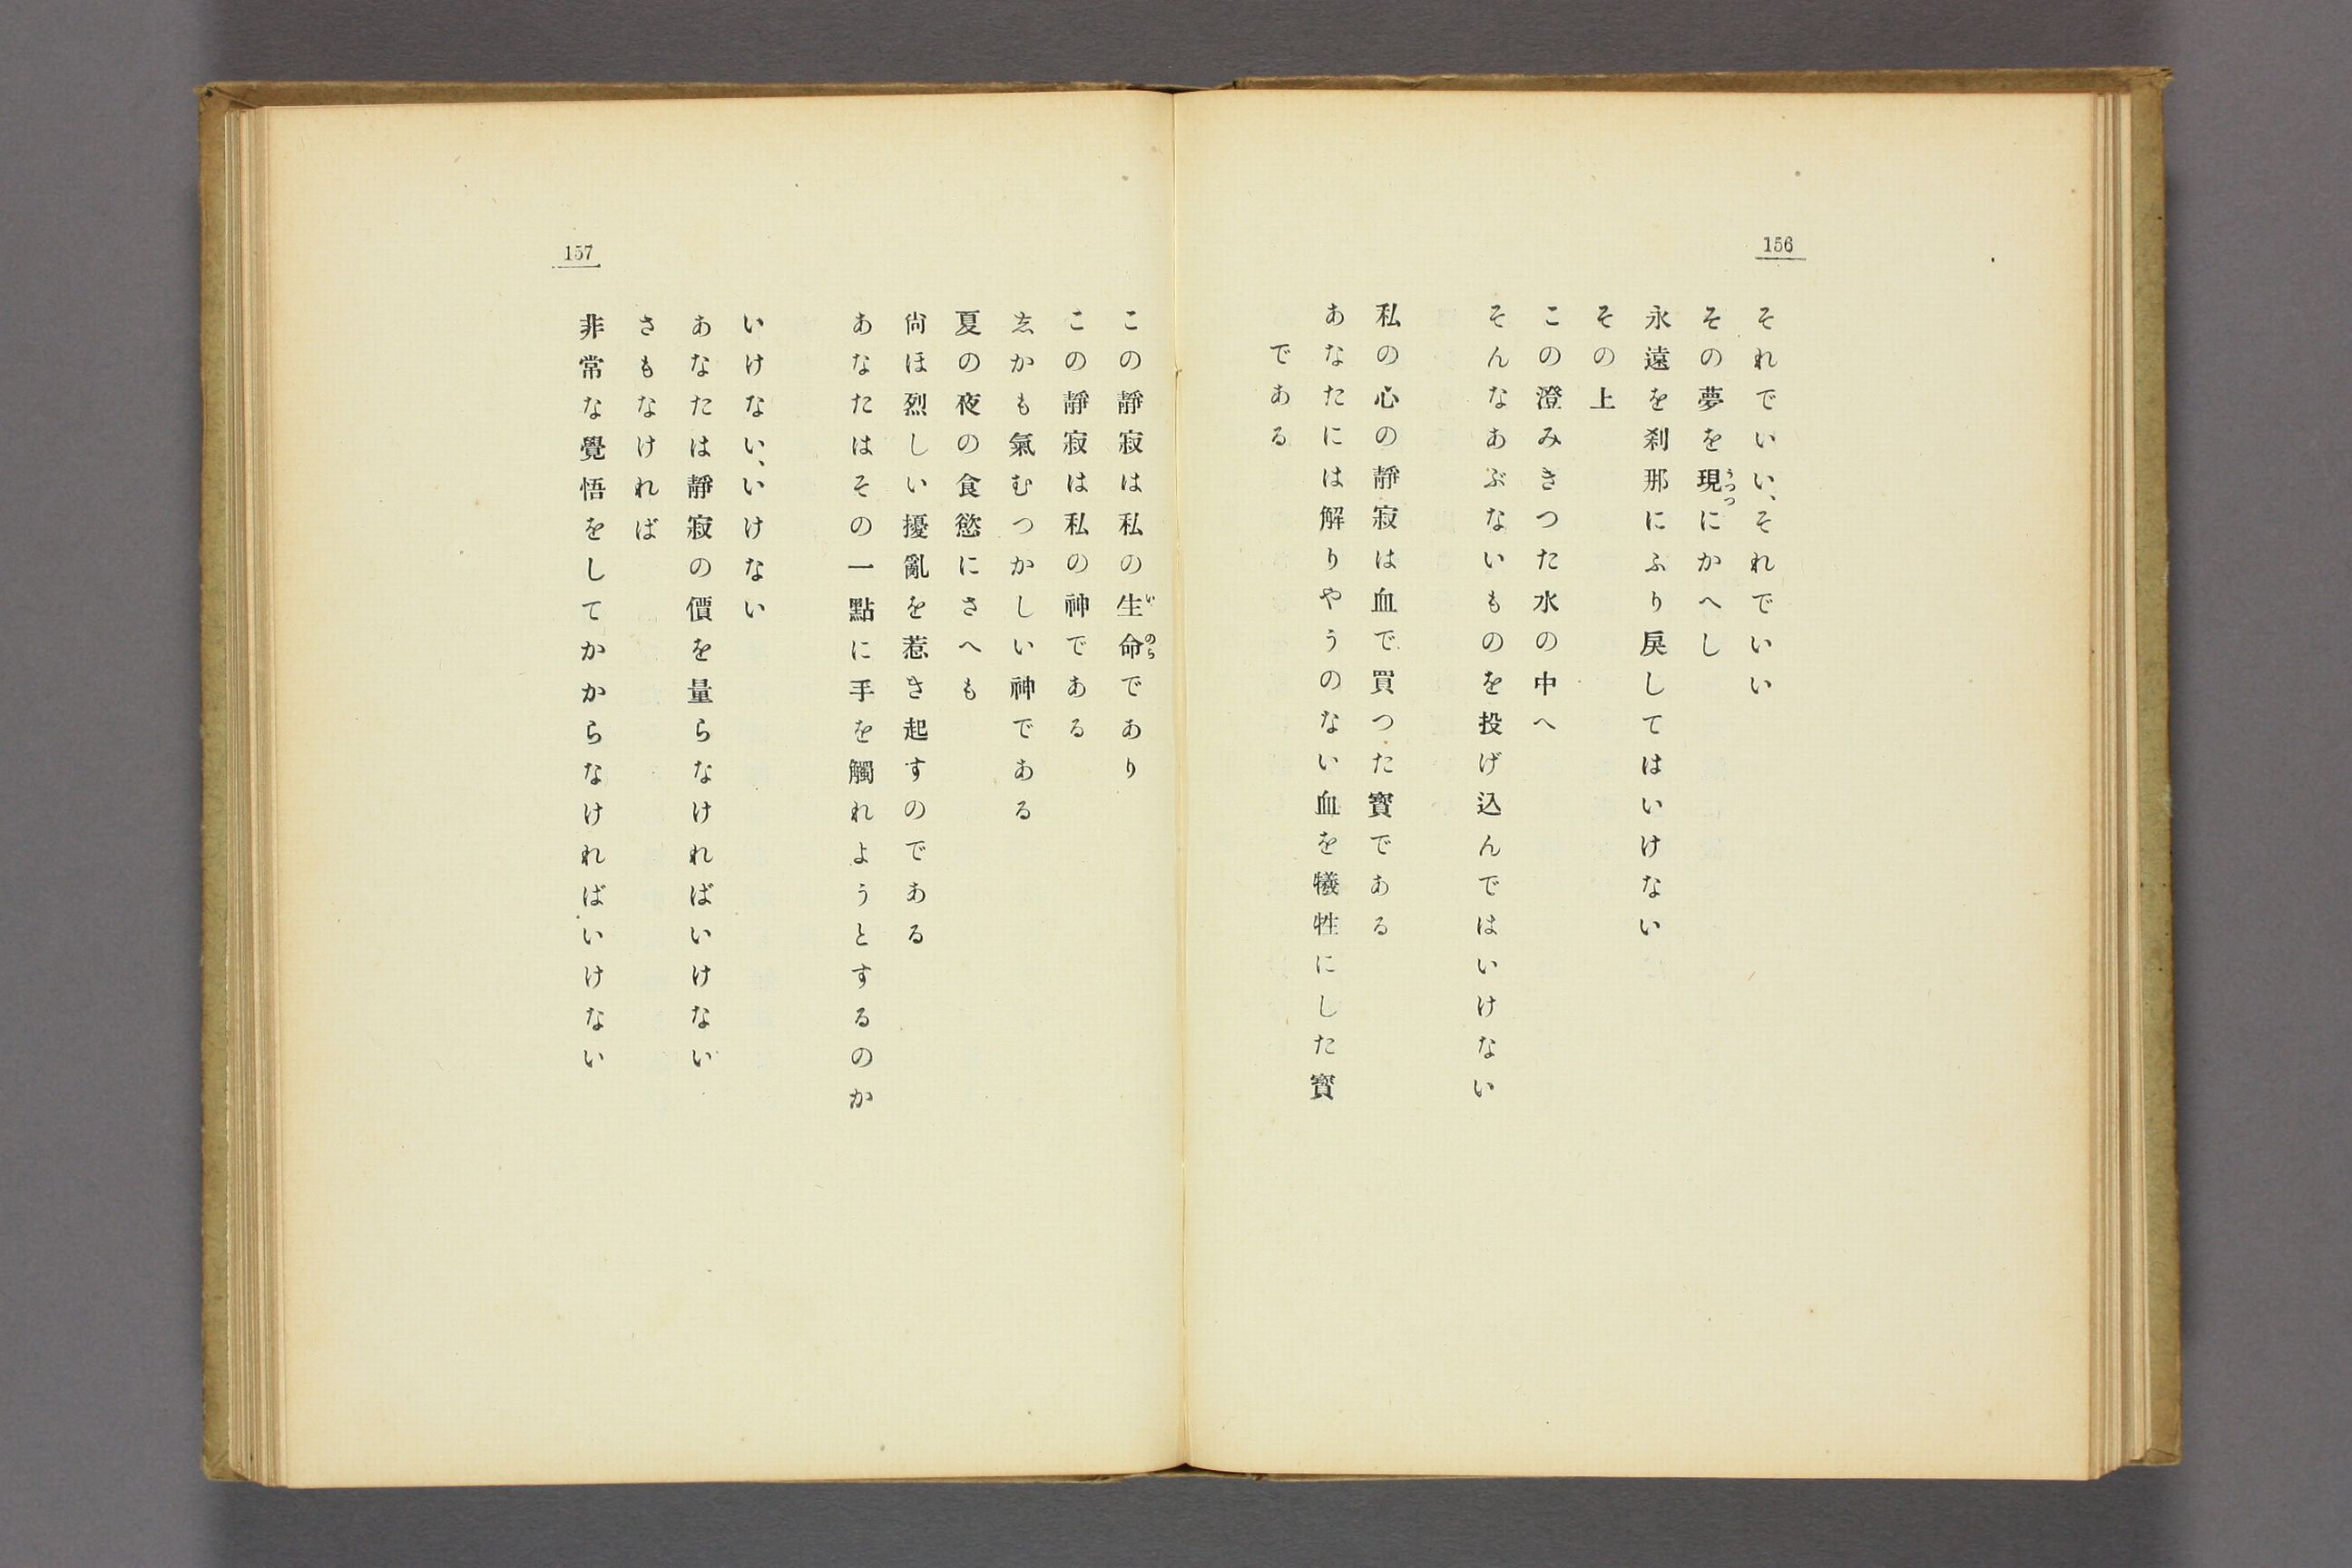 156
それでいい、それでいい
その夢を現にかへし
うつつ
永遠を刹那にふり戻してはいけない
その上
この澄みきつた水の中へ
そんなあぶないものを投げ込んではいけない
私の心の靜寂は血で買つた寳である
あなたには解りやうのない血を犧牲にした寳
である
157
この靜寂は私の生命であり
いのち
この靜寂は私の神である
志かも氣むつかしい神である
夏の夜の食慾にさへも
尙ほ烈しい擾亂を惹き起すのである
あなたはその一點に手を觸れようとするのか
いけない、いけない
あなたは靜寂の價を量らなければいけない
さもなければ
非常な覺悟をしてかからなければいけない